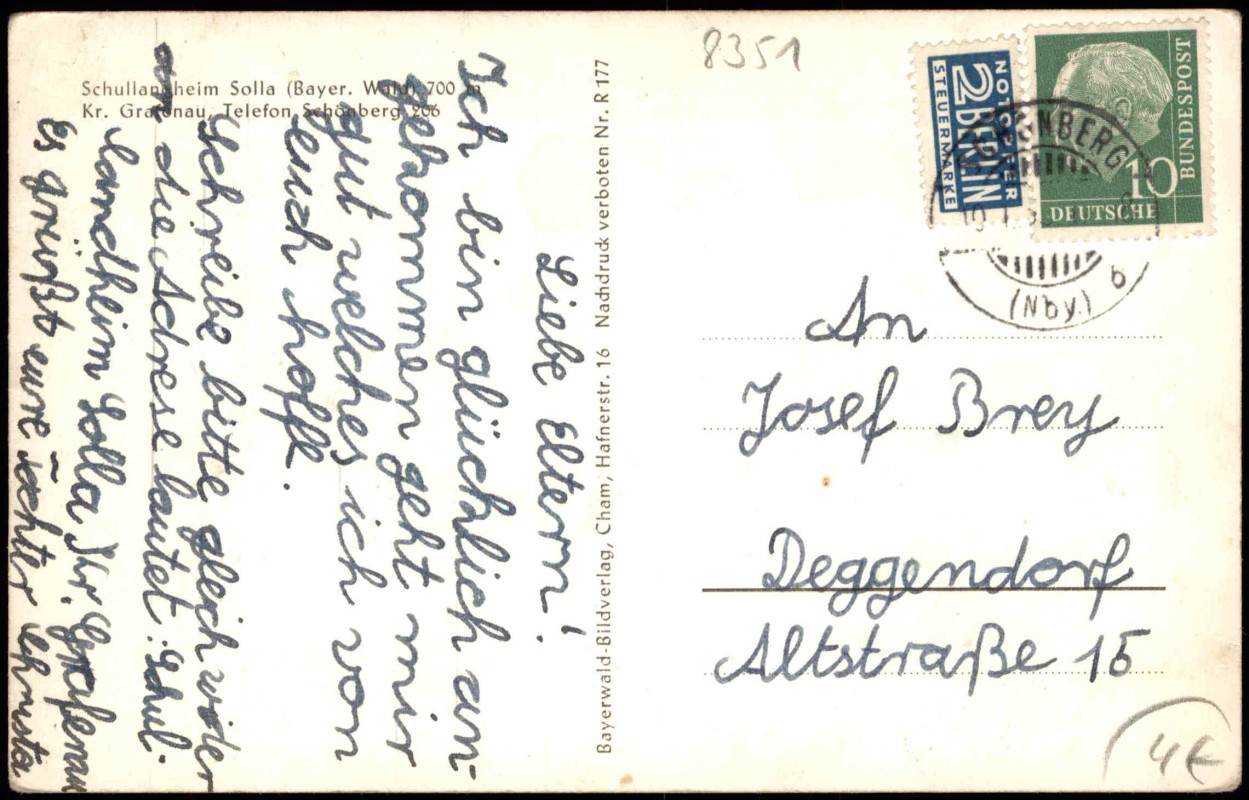 Schullandheim Solla (Bayer. Wald) 700 m
Kr. Grafenau, Telefon Schönberg 206
Liebe Eltern!
Ich bin glücklich an-
gekommen geht mir
gut welches ich von
euch hoffe.
Schreibe bitte gleich wider
an die Adrese lautet: Schul-
landheim Solla Kr. Grafenau
Es grüßt eure Tochter Christa
Bayerwald-Bildverlag, Cham, Hafnerstr. 16 Nachdruck verboten Nr. R 177
8351
NOTOPFER
2 BERLIN
STEUERMARKE
10
DEUTSCHE
BUNDESPOST
(Nby.)
b
An
Josef Brey
Deggendorf
Altstraße 15
4€